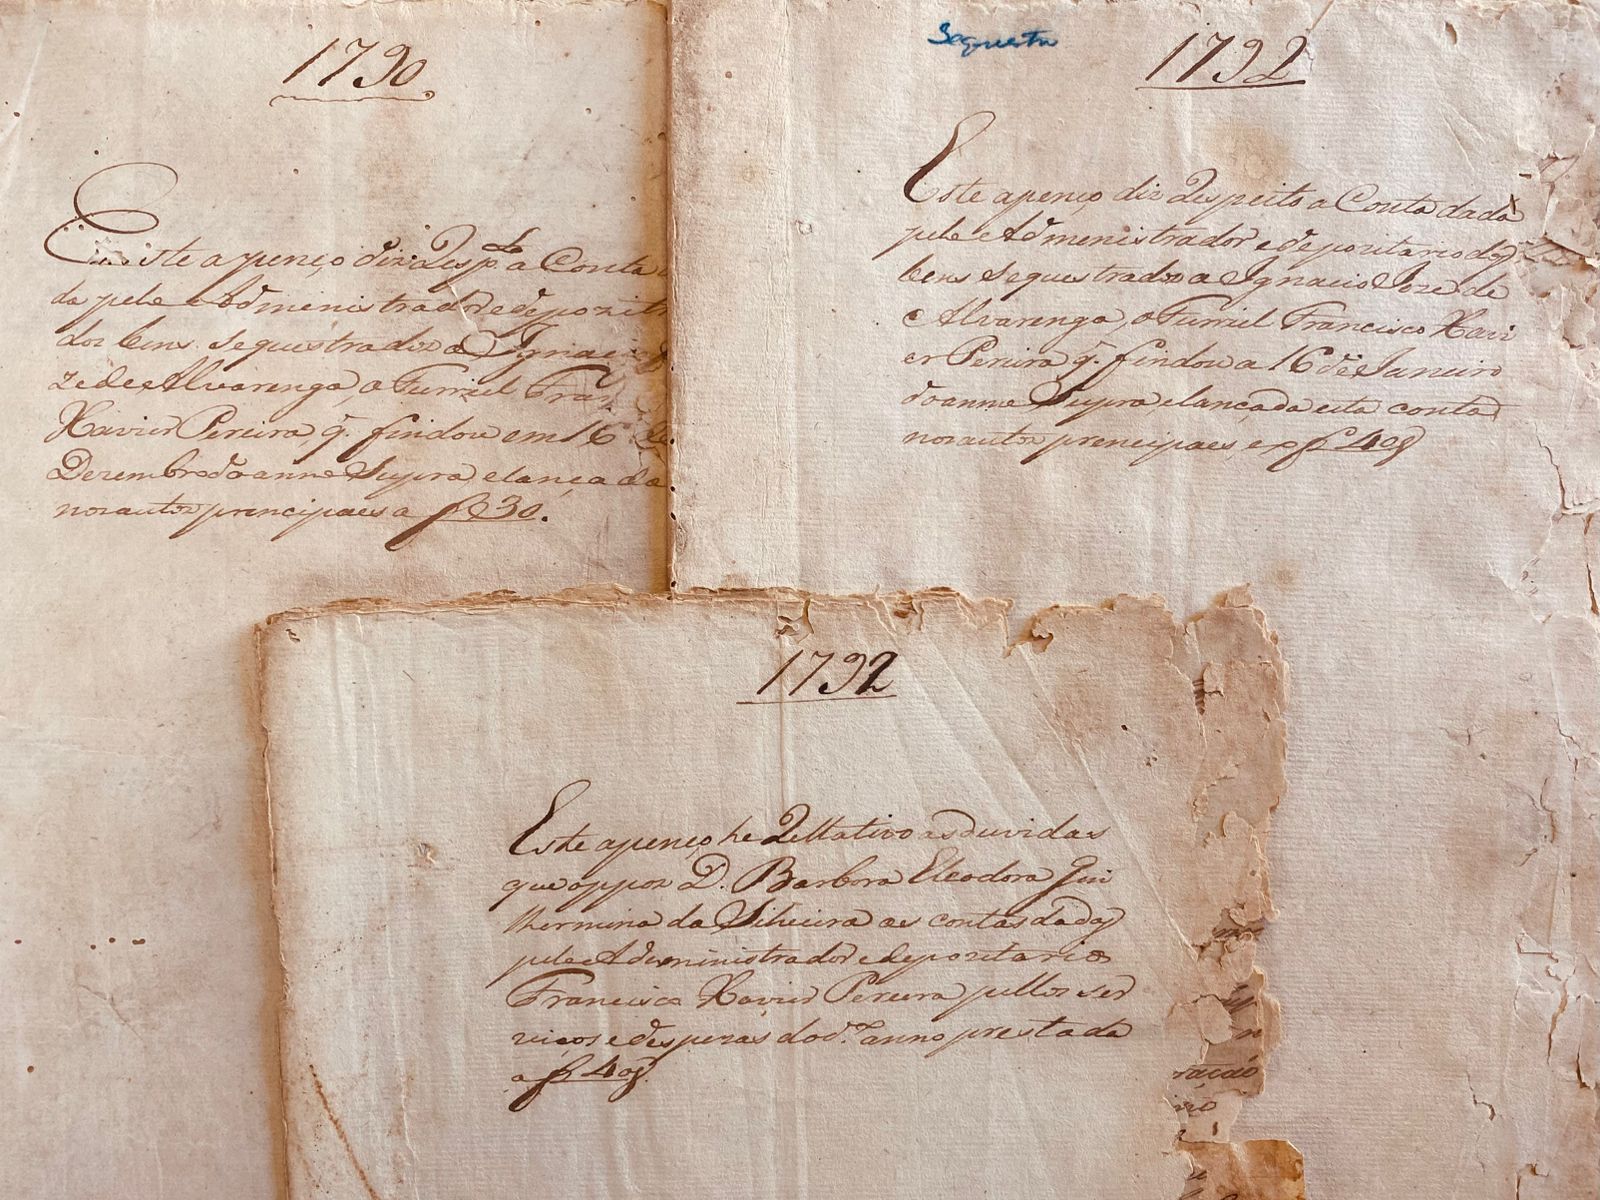 1790
Este apenço diz Resp.to a Conta
da pelo Admenistrador e depozit
dos bens sequestrados a Ignaci
ze de Alvarenga, o Furriel Fran
Xavier Pereira, q. findou em 16 de
Dezembro do anno Supra, e lançada
nos autos prencipaes a f 30.
Sequestro
1792
Este apenço diz Respeito a Conta dada
pelo Admenistrador e depozitario dos
bens sequestrados a Ignacio Joze de
Alvarenga, o Furriel Francisco Xavi
er Pereira q. findou a 16 de Janeiro
do anno Supra, e lançada esta conta
nos autos prencipaes, ex f 40
1792
Este apenço he Rellativo as duvidas
que oppoz D. Barbora Eleodora Gui
lhermina da Silveira as contas dadas
pelo Administrador e depozitario
Francisco Xavier Pereira pellos ser
viços e despezas do d.o anno prestada
a f 40
ração